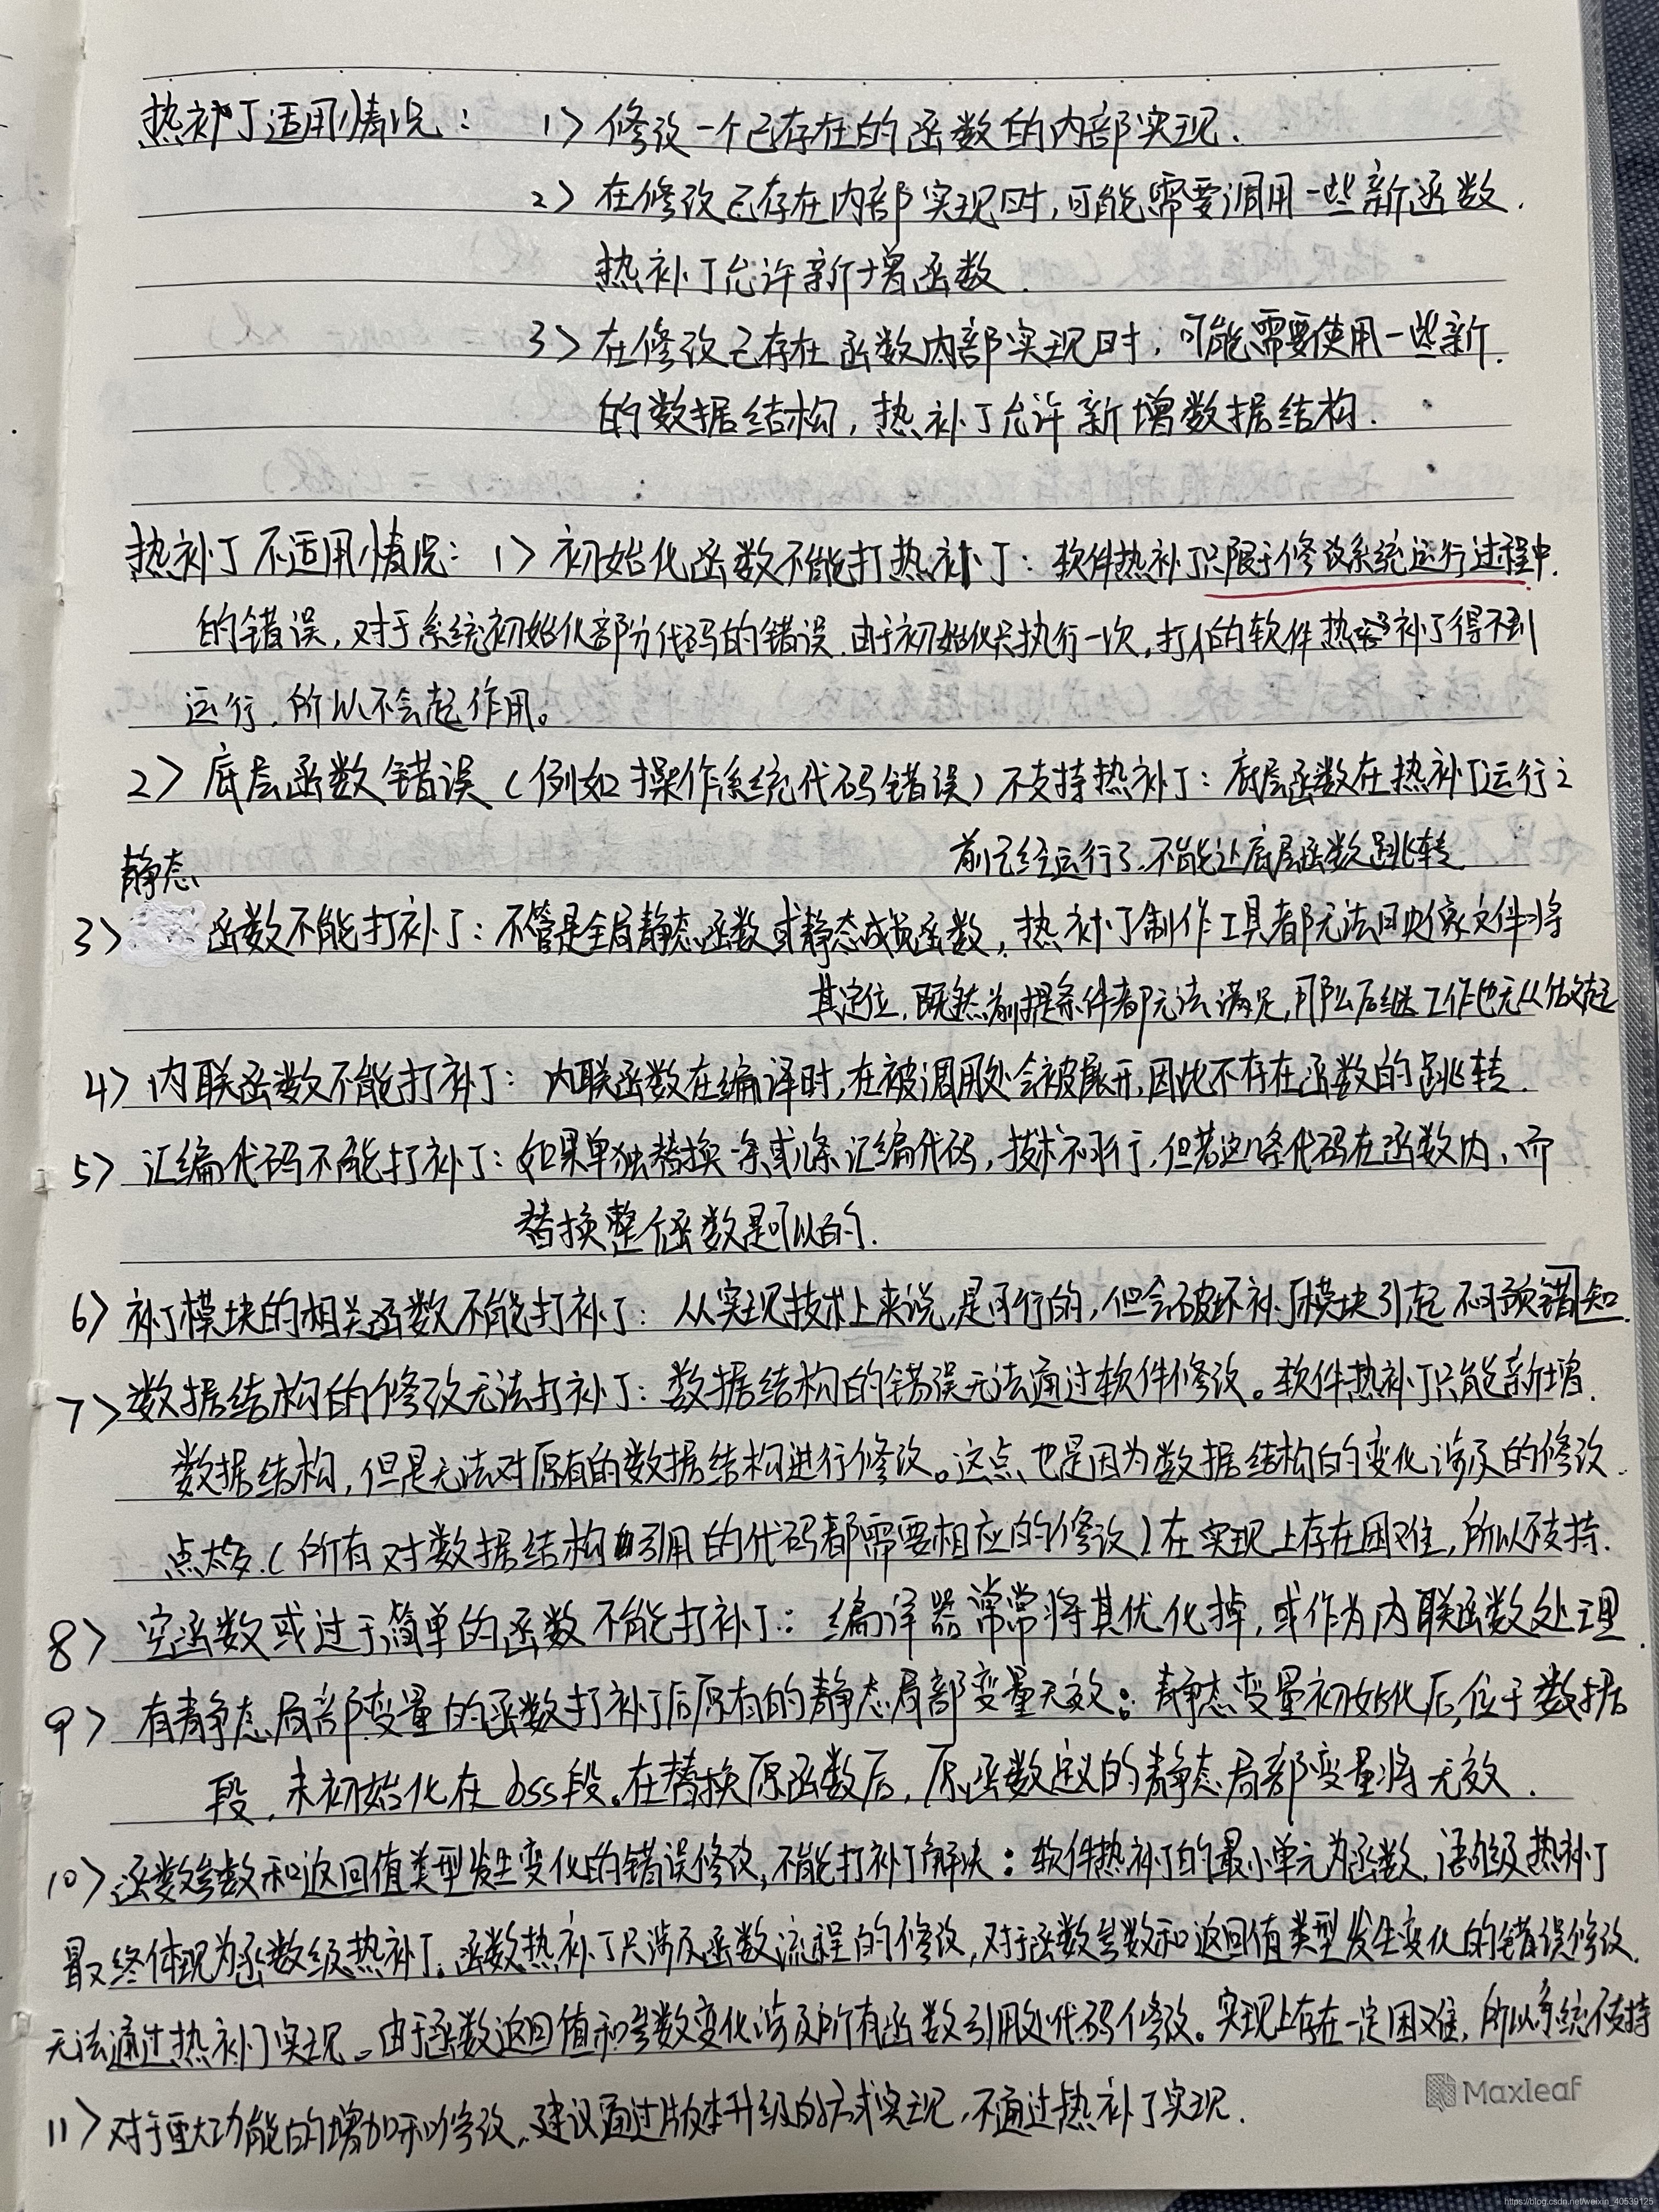 热补丁适用情况： 1> 修改一个已存在的函数的内部实现.
2> 在修改已存在内部实现时,可能需要调用一些新函数.
热补丁允许新增函数.
3> 在修改已存在函数内部实现时,可能需要使用一些新.
的数据结构,热补丁允许新增数据结构.
热补丁不适用情况：1> 初始化函数不能打热补丁：软件热补丁只限于修改系统运行过程中.
的错误,对于系统初始化部分代码的错误.由于初始化只执行一次,打入的软件热补丁得不到
运行,所以不会起作用。
2> 底层函数错误(例如操作系统代码错误)不支持热补丁：底层函数在热补丁运行之
前已经运行了.不能让底层函数跳转
静态
3> 函数不能打补丁：不管是全局静态函数或静态成员函数,热补丁制作工具都无法用映像文件将
其定位,既然前提条件都无法满足,那么后继工作也无从做起
4> 内联函数不能打补丁：内联函数在编译时,在被调用处会被展开,因此不存在函数的跳转.
5> 汇编代码不能打补丁：如果单独替换一条或几条汇编代码,技术不可行,但若这几条代码在函数内,而
替换整个函数是可以的.
6> 补丁模块的相关函数不能打补丁：从实现技术上来说,是可行的,但会破坏补丁模块引起不可预错知.
7> 数据结构的修改无法打补丁：数据结构的错误无法通过软件修改。软件热补丁只能新增.
数据结构,但是无法对原有的数据结构进行修改。这点也是因为数据结构的变化涉及的修改.
点太多.(所有对数据结构引用的代码都需要相应的修改)在实现上存在困难,所以不支持.
8> 空函数或过于简单的函数不能打补丁：编译器常常将其优化掉,或作为内联函数处理.
9> 有静态局部变量的函数打补丁后原有的静态局部变量无效：静态变量初始化后,位于数据
段,未初始化在bss段。在替换原函数后,原函数定义的静态局部变量将无效.
10> 函数参数和返回值类型发生变化的错误修改,不能打补丁解决：软件热补丁的最小单元为函数,语句级热补丁
最终体现为函数级热补丁。函数热补丁只涉及函数流程的修改,对于函数参数和返回值类型发生变化的错误修改.
无法通过热补丁实现。由于函数返回值和参数变化涉及所有函数引用处代码修改。实现上存在一定困难,所以系统不支持
11> 对于重大功能的增加和修改,建议通过版本升级的方式实现,不通过热补丁实现.
Maxleaf
https://blog.csdn.net/weixin_40539125